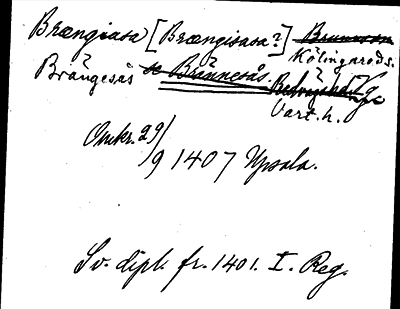 Brængiasa [Brængisasa?] Brunnsson
Kölingareds.
Brängesås se Brännesås. Redvägshd Vg
Vart. h.
Omkr. 29/9 1407 Upsala.
Sv. dipl. fr. 1401. I. Reg.